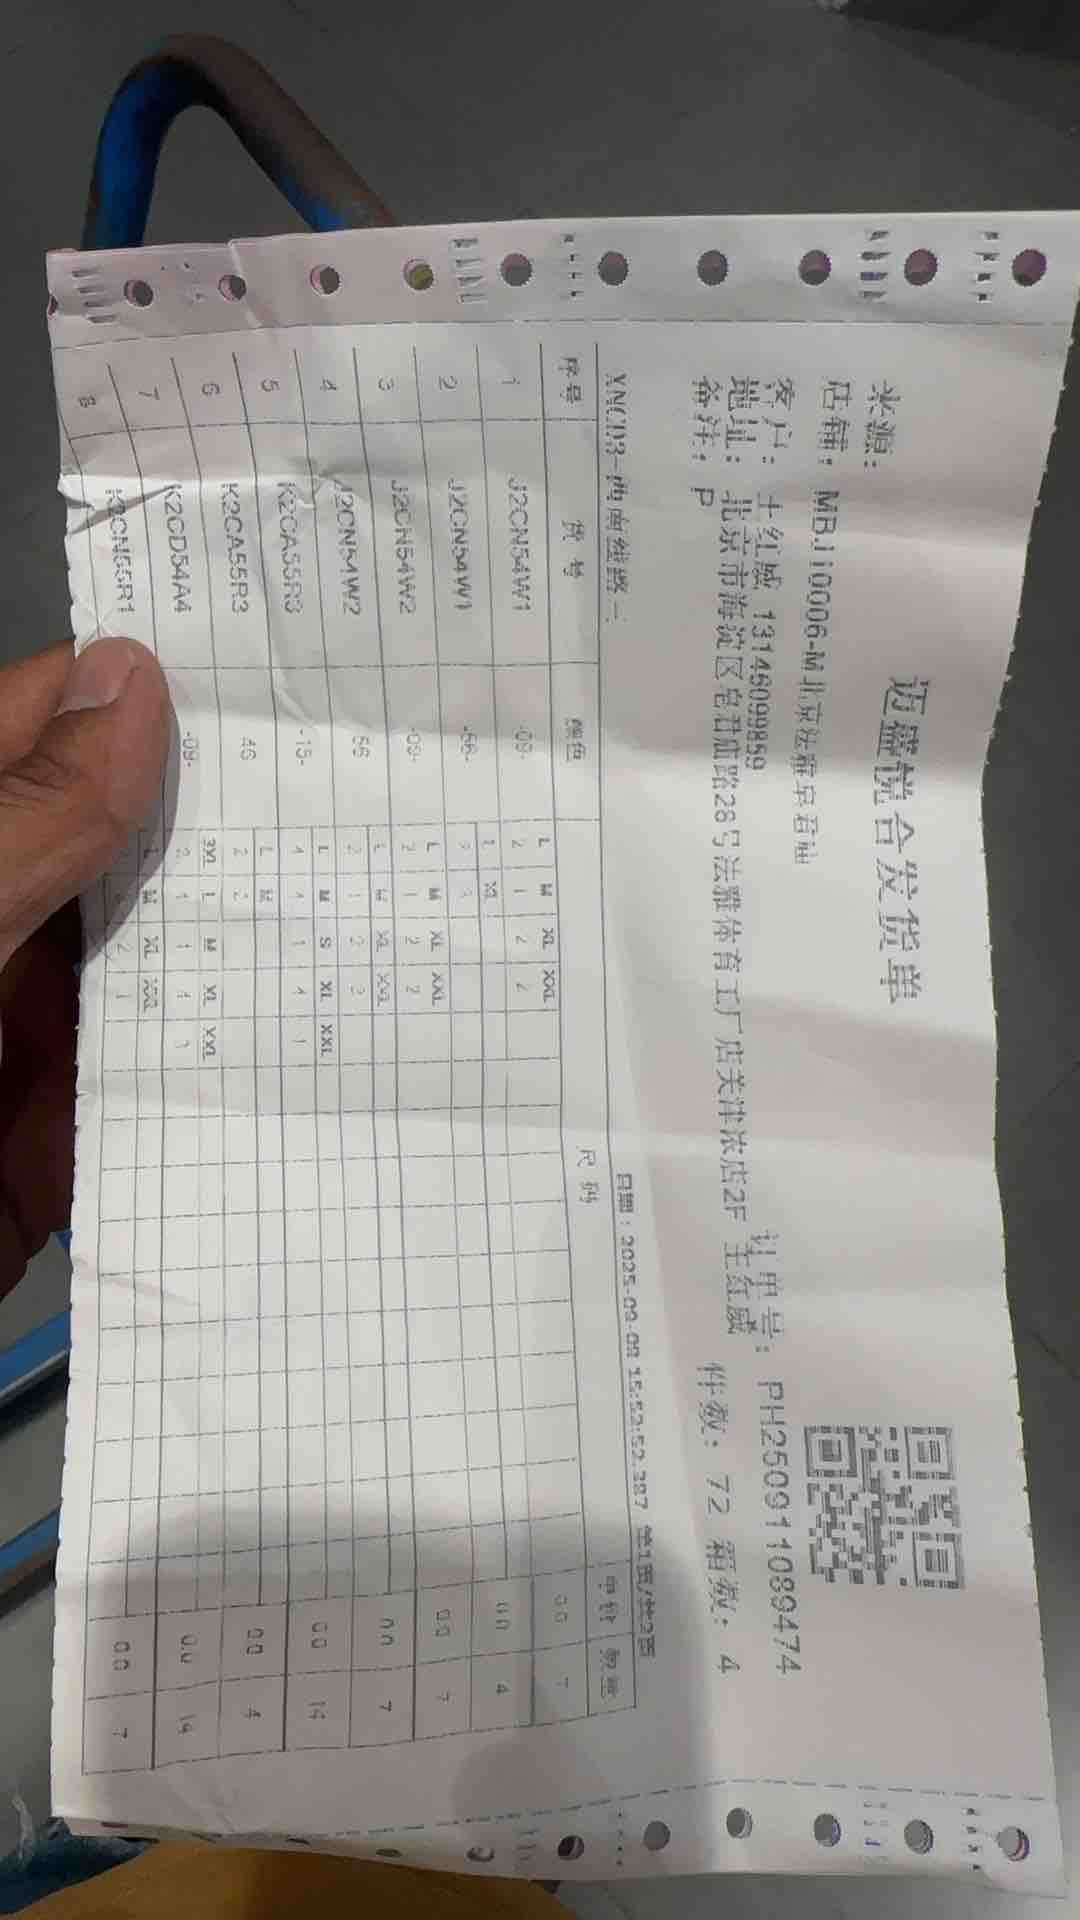 迈盛悦合发货单
来源：
店铺：MBJ10006-M北京法雅皂君庙
客户：王红威 13146099859 订单号：PH250911089474
地址：北京市海淀区皂君庙路28号法雅体育工厂店关津浓店2F 王红威
备注：P 件数：72 箱数：4
XNCD3-西南线路二 日期：2025-09-09 15:52:52.387 第1页/共2页
序号 货号 颜色 尺码 单价 数量
L M XL XXL
1 J2CN54W1 -09- 2 1 2 2 0.0 7
L XL
2 J2CN54W1 -56- 0.0 4
L M XL XXL
3 J2CN54W2 -09- 2 1 2 2 0.0 7
L M XL XXL
4 J2CN54W2 56 2 1 2 2 0.0 7
L M S XL XXL
5 K2CA55R3 -15- 4 4 1 4 1 0.0 14
L M
6 K2CA55R3 46 2 2 0.0 4
3XL L M XL XXL
7 K2CD54A4 -09- 0.0 14
L M XL XXL
8 K2CN55R1 2 1 0.0 7